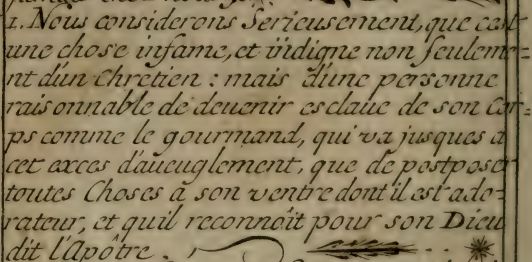 1. Nous considerons Serieusement, que cest
une chose infame, et indigne non seuleme=
nt dun Chretien : mais d'une personne
raisonnable de deuenir esclaue de son Cor=
ps comme le gourmand, qui va jusques a
cet exces d'aueuglement, que de postposer
toutes Choses à son ventre dont il est ado=
rateur, et quil reconnoît pour son Dieu
dit l'Apôtre.